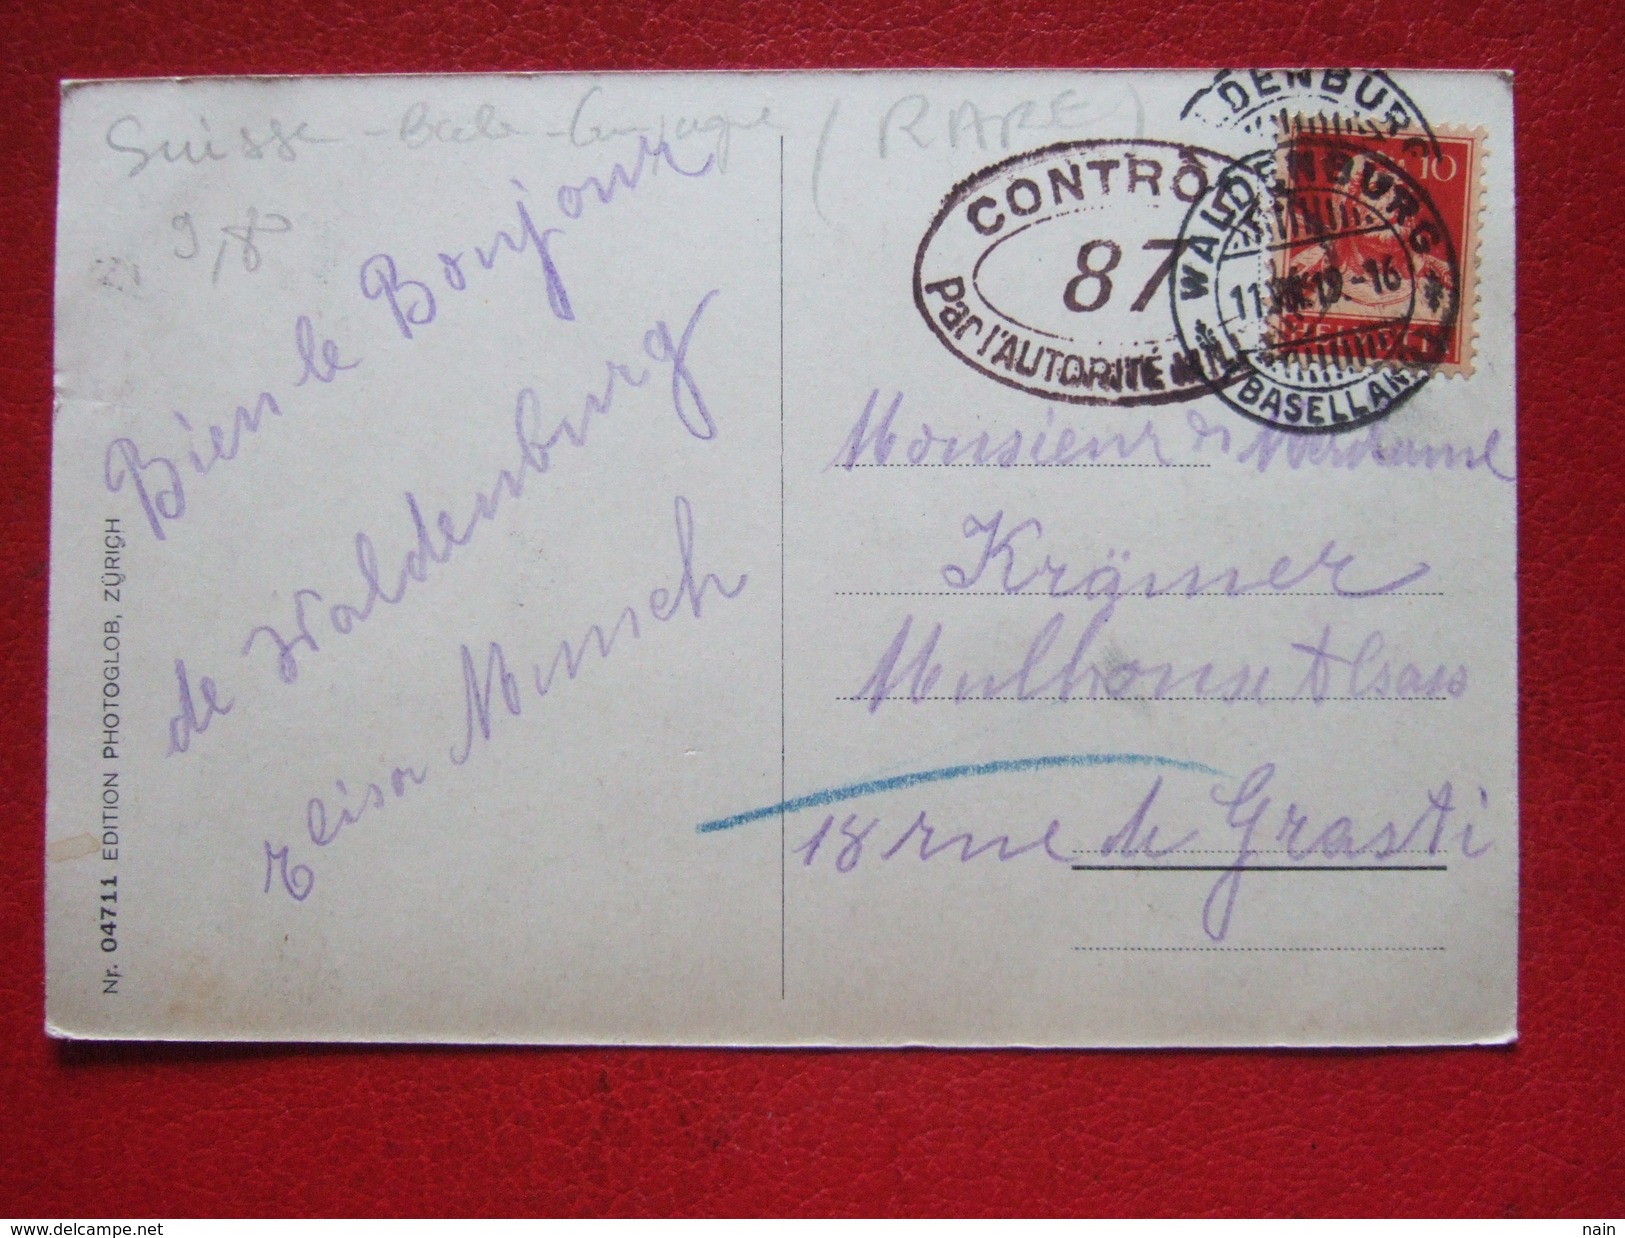 Suisse - Bale - Campagne (RARE)
9,80
Bien le Bonjour
de Waldenburg
Elisa Munsch
Nr. 04711 EDITION PHOTOGLOB, ZÜRICH
CONTRÔ
87
Par l'AUTORITÉ MILI
DENBURG
10
WALDENBURG
11.VII.19.-16
(BASELLAN
Monsieur et Madame
Krämer
Mulhouse Alsace
18 rue de Grasti
delcampe.net
nain